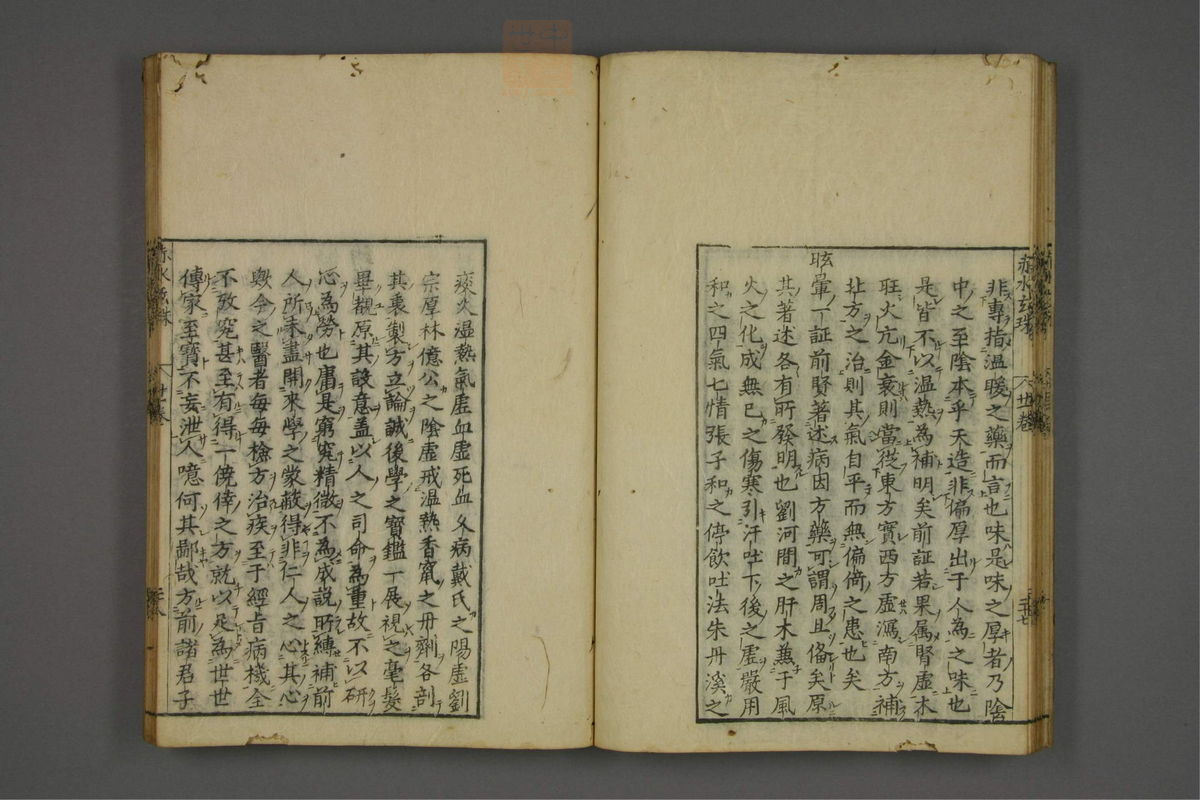 赤水玄珠
廿一卷
非專指温暖之藥而言也味是味之厚者乃陰
中之至陰本乎天造非偏厚出于人為之味也
是皆不以温熱為補明矣前証若果属腎虚木
旺火亢金衰則當從東方實西方虚瀉南方補
北方之治則其氣自平而無偏倚之患也矣
眩暈一証前賢著述病因方藥可謂周且俻矣原
其著述各有所發明也劉河間之肝木兼于風
火之化成無已之傷寒引汗吐下後之虚嚴用
和之四氣七情張子和之停飲吐法朱丹溪之
痰火濕熱氣虚血虚死血久病戴氏之陽虚劉
宗厚林億公之陰虚戒温熱香竄之丹劑各剖
其裏製方立論誠後學之寶鑑一展視之毫髮
畢覩原其設意盖以人之司命為重故不以研
心為勞也庸是窮究精微不為成說所縛補前
人所未盡開來學之蒙蔽得非仁人之心其心
歟今之醫者每每檢方治疾至于經旨病機全
不攷究甚至有得一僥倖之方就以足為世世
傳家至寶不妄泄人噫何其鄙哉方前諸君子
赤水玄珠
廿一卷